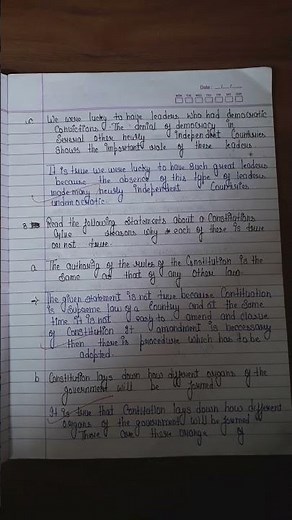 Date
MON TUE WED THU FRI SAT SUN
c. We were lucky to have leaders who had democratic
convictions. The denial of democracy in
several other newly independent Countries
shows the important role of these leaders
It is true we were lucky to have such great leaders
because the absence of this type of leaders
made many newly independent Countries
undemocratic.
3 Read the following statements about a Constitutions
Give reasons why each of these is true
or not true.
a The authority of the rules of the Constitution is the
same as that of any other law.
→ The given statement is not true because Constitution
is supreme law of a Country and at the same
time it is not easy to amend and clause
of Constitution If amendment is neccessary
then there is procedure which has to be
adopted.
b Constitution lays down how different organs of the
government will be formed
It is true that Contitution lays down how different
organs of the government will be formed
There are three of